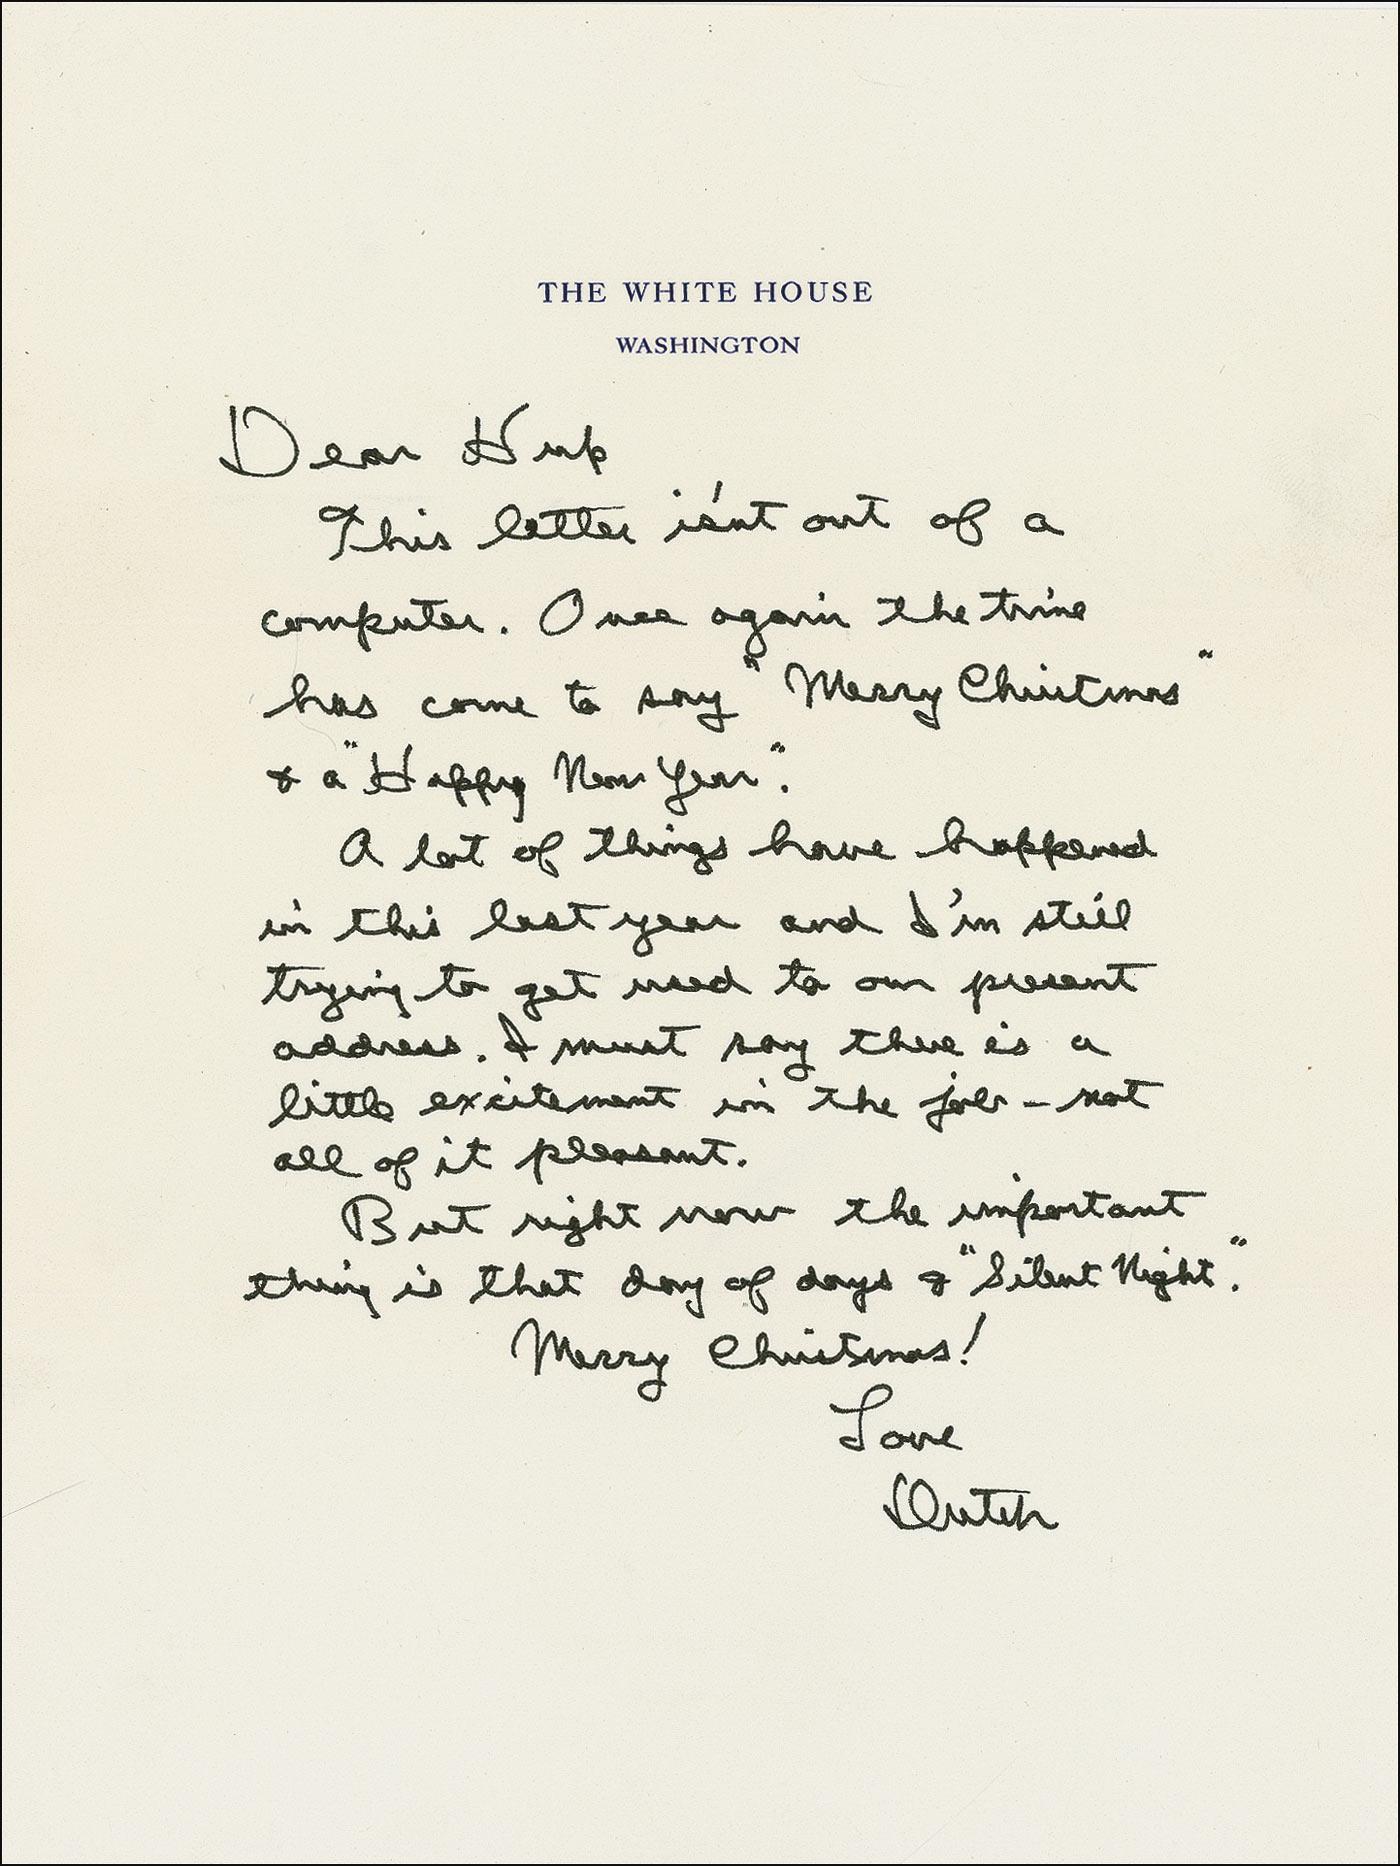 THE WHITE HOUSE
WASHINGTON
Dear Hup
This letter is'nt out of a
computer. Once again the time
has come to say "Merry Christmas"
& a "Happy New Year".
A lot of things have happened
in this last year and I'm still
trying to get used to our present
address. I must say there is a
little excitement in the job - not
all of it pleasant.
But right now the important
thing is that day of days & "Silent Night".
Merry Christmas!
Love
Dutch